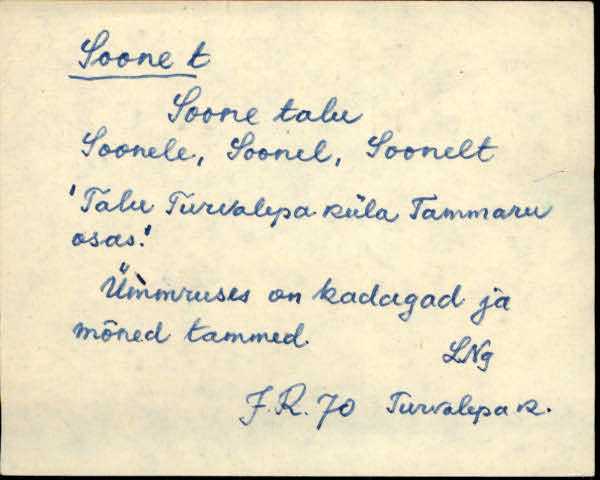 Soone t
Soone talu
Soonele, Soonel, Soonelt
'Talu Turvalepa küla Tammaru
osas.'
Ümmruses on kadagad ja
mõned tammed.
LNg
J.R. 70 Turvalepa k.